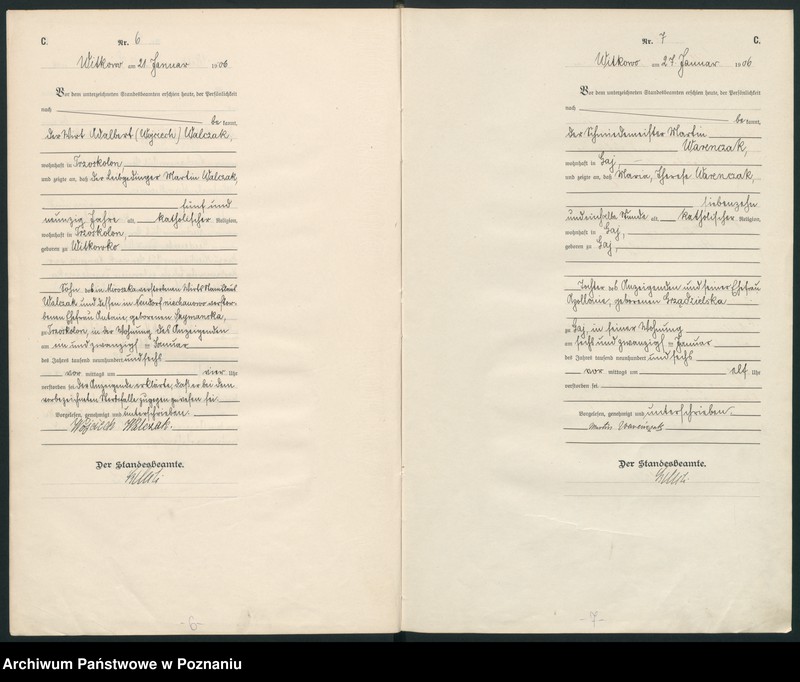 C.
Nr. 6
Witkowo am 21. Januar 1906
Vor dem unterzeichneten Standesbeamten erschien heute, der Persönlichkeit
nach
be kannt,
der Wirt Adalbert (Wojciech) Walczak,
wohnhaft in Trzoskolon
und zeigte an, daß der Leibgedinger Martin Walczak,
fünf und
neunzig Jahre alt, katholischer Religion,
wohnhaft in Trzoskolon,
geboren zu Witkowko
Sohn des in verstorbenen Wirts Stanislaus
Walczak und dessen in verstor-
benen Ehefrau Antonie, geborenen Szymanska,
zu Trzoskolon, in der Wohnung des Anzeigenden
am ein und zwanzigsten Januar
des Jahres tausend neunhundert und sechs
vor mittags um vier Uhr
verstorben sei. Der Anzeigende erklärte, daß er bei dem
vorbezeichneten Sterbefalle zugegen gewesen sei.
Vorgelesen, genehmigt und unterschrieben.
Wojciech Walczak.
Der Standesbeamte.
- 6 -
Nr. 7
C.
Witkowo am 27. Januar 1906
Vor dem unterzeichneten Standesbeamten erschien heute, der Persönlichkeit
nach
be kannt,
der Schmiedemeister Martin
Warenczak,
wohnhaft in Gaj,
und zeigte an, daß Maria, Therese Warenczak,
siebenzehn
und einhalb Stunde alt, katholischer Religion,
wohnhaft in Gaj,
geboren zu Gaj,
Tochter des Anzeigenden und seiner Ehefrau
Apollonie, geborenen Grządzielska
zu Gaj, in seiner Wohnung
am sechs und zwanzigsten Januar
des Jahres tausend neunhundert und sechs
vor mittags um elf Uhr
verstorben sei.
Vorgelesen, genehmigt und unterschrieben.
Martin Warenczak
Der Standesbeamte.
- 7 -
Archiwum Państwowe w Poznaniu